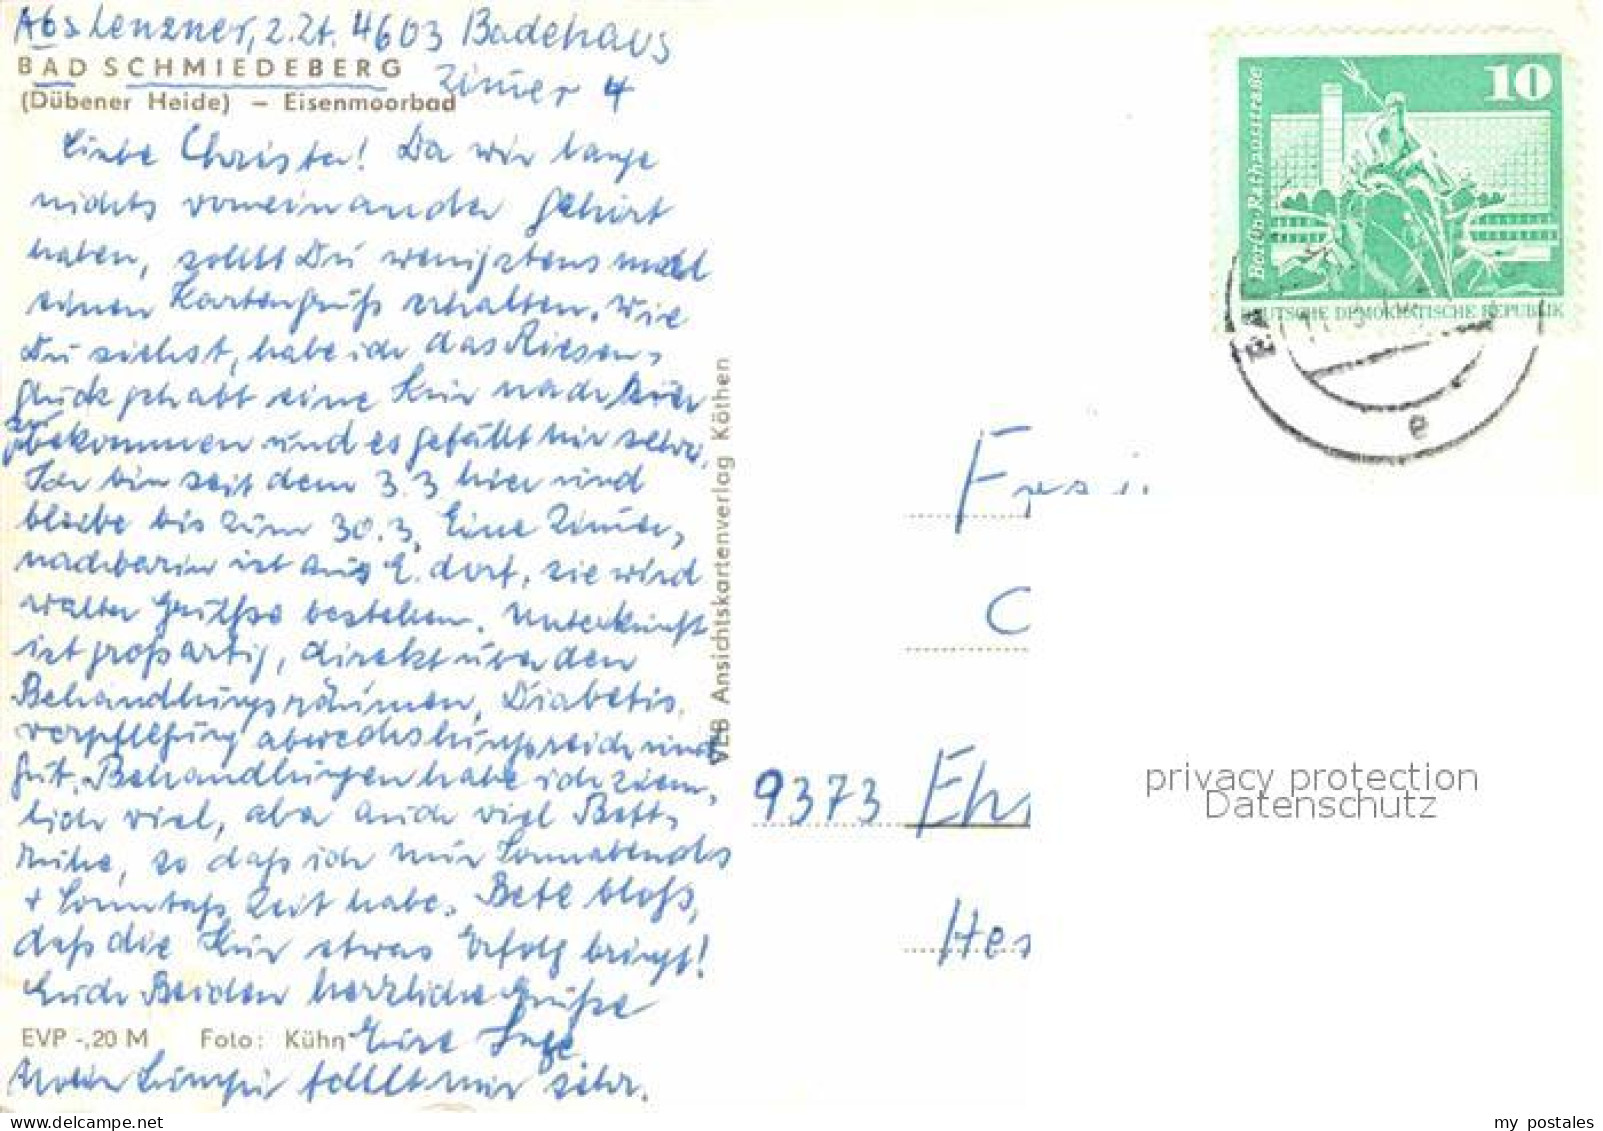 Abs Lenzner, z. Zt. 4603 Badehaus
BAD SCHMIEDEBERG
Zimer 4
(Dübener Heide) – Eisenmoorbad
Liebe Christa! Da wir lange
nichts voneinander gehört
haben, sollst Du wenigstens mal
einen Kartengruß erhalten. Wie
Du siehst, habe ich das Riesen-
glück gehabt eine Kur nach hier
zu bekommen und es gefällt mir sehr.
Ich bin seit dem 3.3 hier und
bleibe bis zum 30.3. Eine Zimer-
nachbarin ist aus E. dorf, sie wird
weiter Grüße bestellen. Unterkunft
ist großartig, direkt über den
Behandlungsräumen, Diabetis.
verpflegung abwechslungsreich und
gut. Behandlungen habe ich ziem-
lich viel, aber auch viel Bett-
ruhe, so daß ich nur Sonnabends
+ Sonntags Zeit habe. Bete bloß,
daß die Kur etwas Erfolg bringt!
Euch Beiden herzliche Grüße
EVP -,20 M Foto: Kühn Eure Inge
fehlt mir sehr.
VEB Ansichtskartenverlag Köthen
10
Berlin, Rathausstraße
DEUTSCHE DEMOKRATISCHE REPUBLIK
BA
e
C
9373 Eh
Hes
privacy protection
Datenschutz
my postales